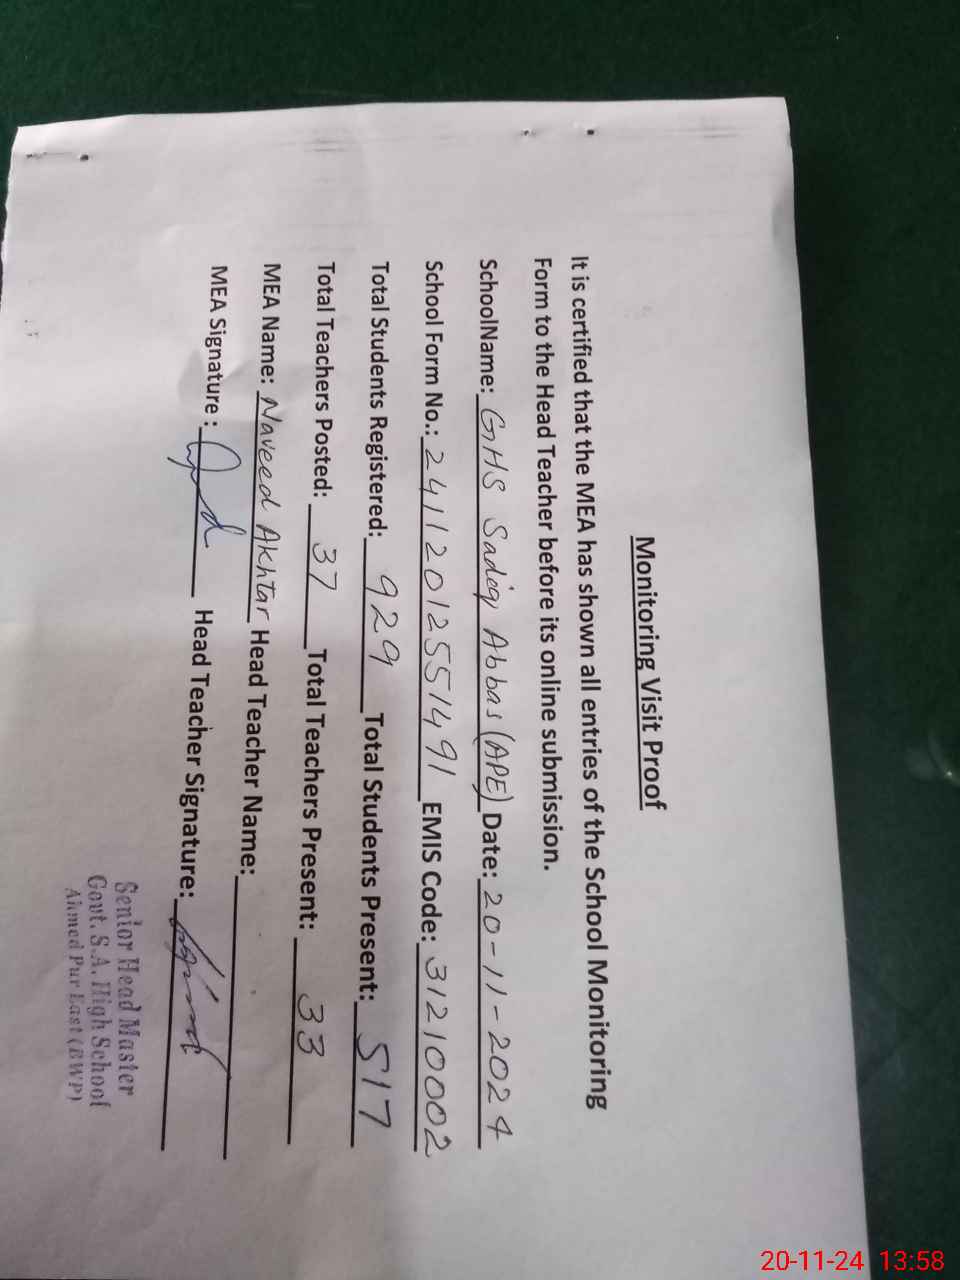 Monitoring Visit Proof
It is certified that the MEA has shown all entries of the School Monitoring
Form to the Head Teacher before its online submission.
SchoolName: GHS Sadeq Abbas (APE) Date: 20-11-2024
School Form No.: 241120125551491 EMIS Code: 31210002
Total Students Registered: 929 Total Students Present: 517
Total Teachers Posted: 37 Total Teachers Present: 33
MEA Name: Naveed Akhtar Head Teacher Name:
MEA Signature : Head Teacher Signature:
Senior Head Master
Govt. S.A. High School
Ahmed Pur East (BWP)
20-11-24 13:58